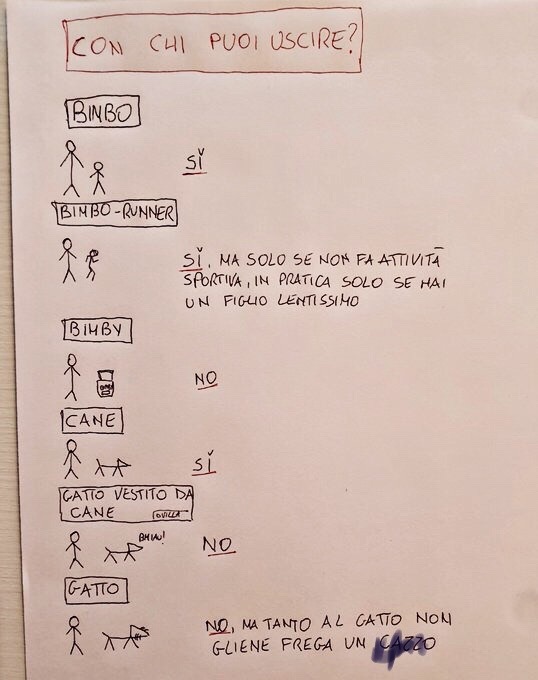 CON CHI PUOI USCIRE?
BIMBO
SÌ
BIMBO-RUNNER
SÌ, MA SOLO SE NON FA ATTIVITÀ
SPORTIVA, IN PRATICA SOLO SE HAI
UN FIGLIO LENTISSIMO
BIMBY
NO
CANE
SÌ
GATTO VESTITO DA
CANE
NO
GATTO
NO, MA TANTO AL GATTO NON
GLIENE FREGA UN CAZZO